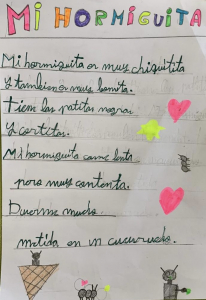 Mi HORMIGUITA
Mi hormiguita es muy chiquitita
y tambien es muy bonita.
Tiene las patitas negras
y cortitas.
Mi hormiguita come lenta
pero muy contenta.
Duerme mucho
metida en un cucurucho.